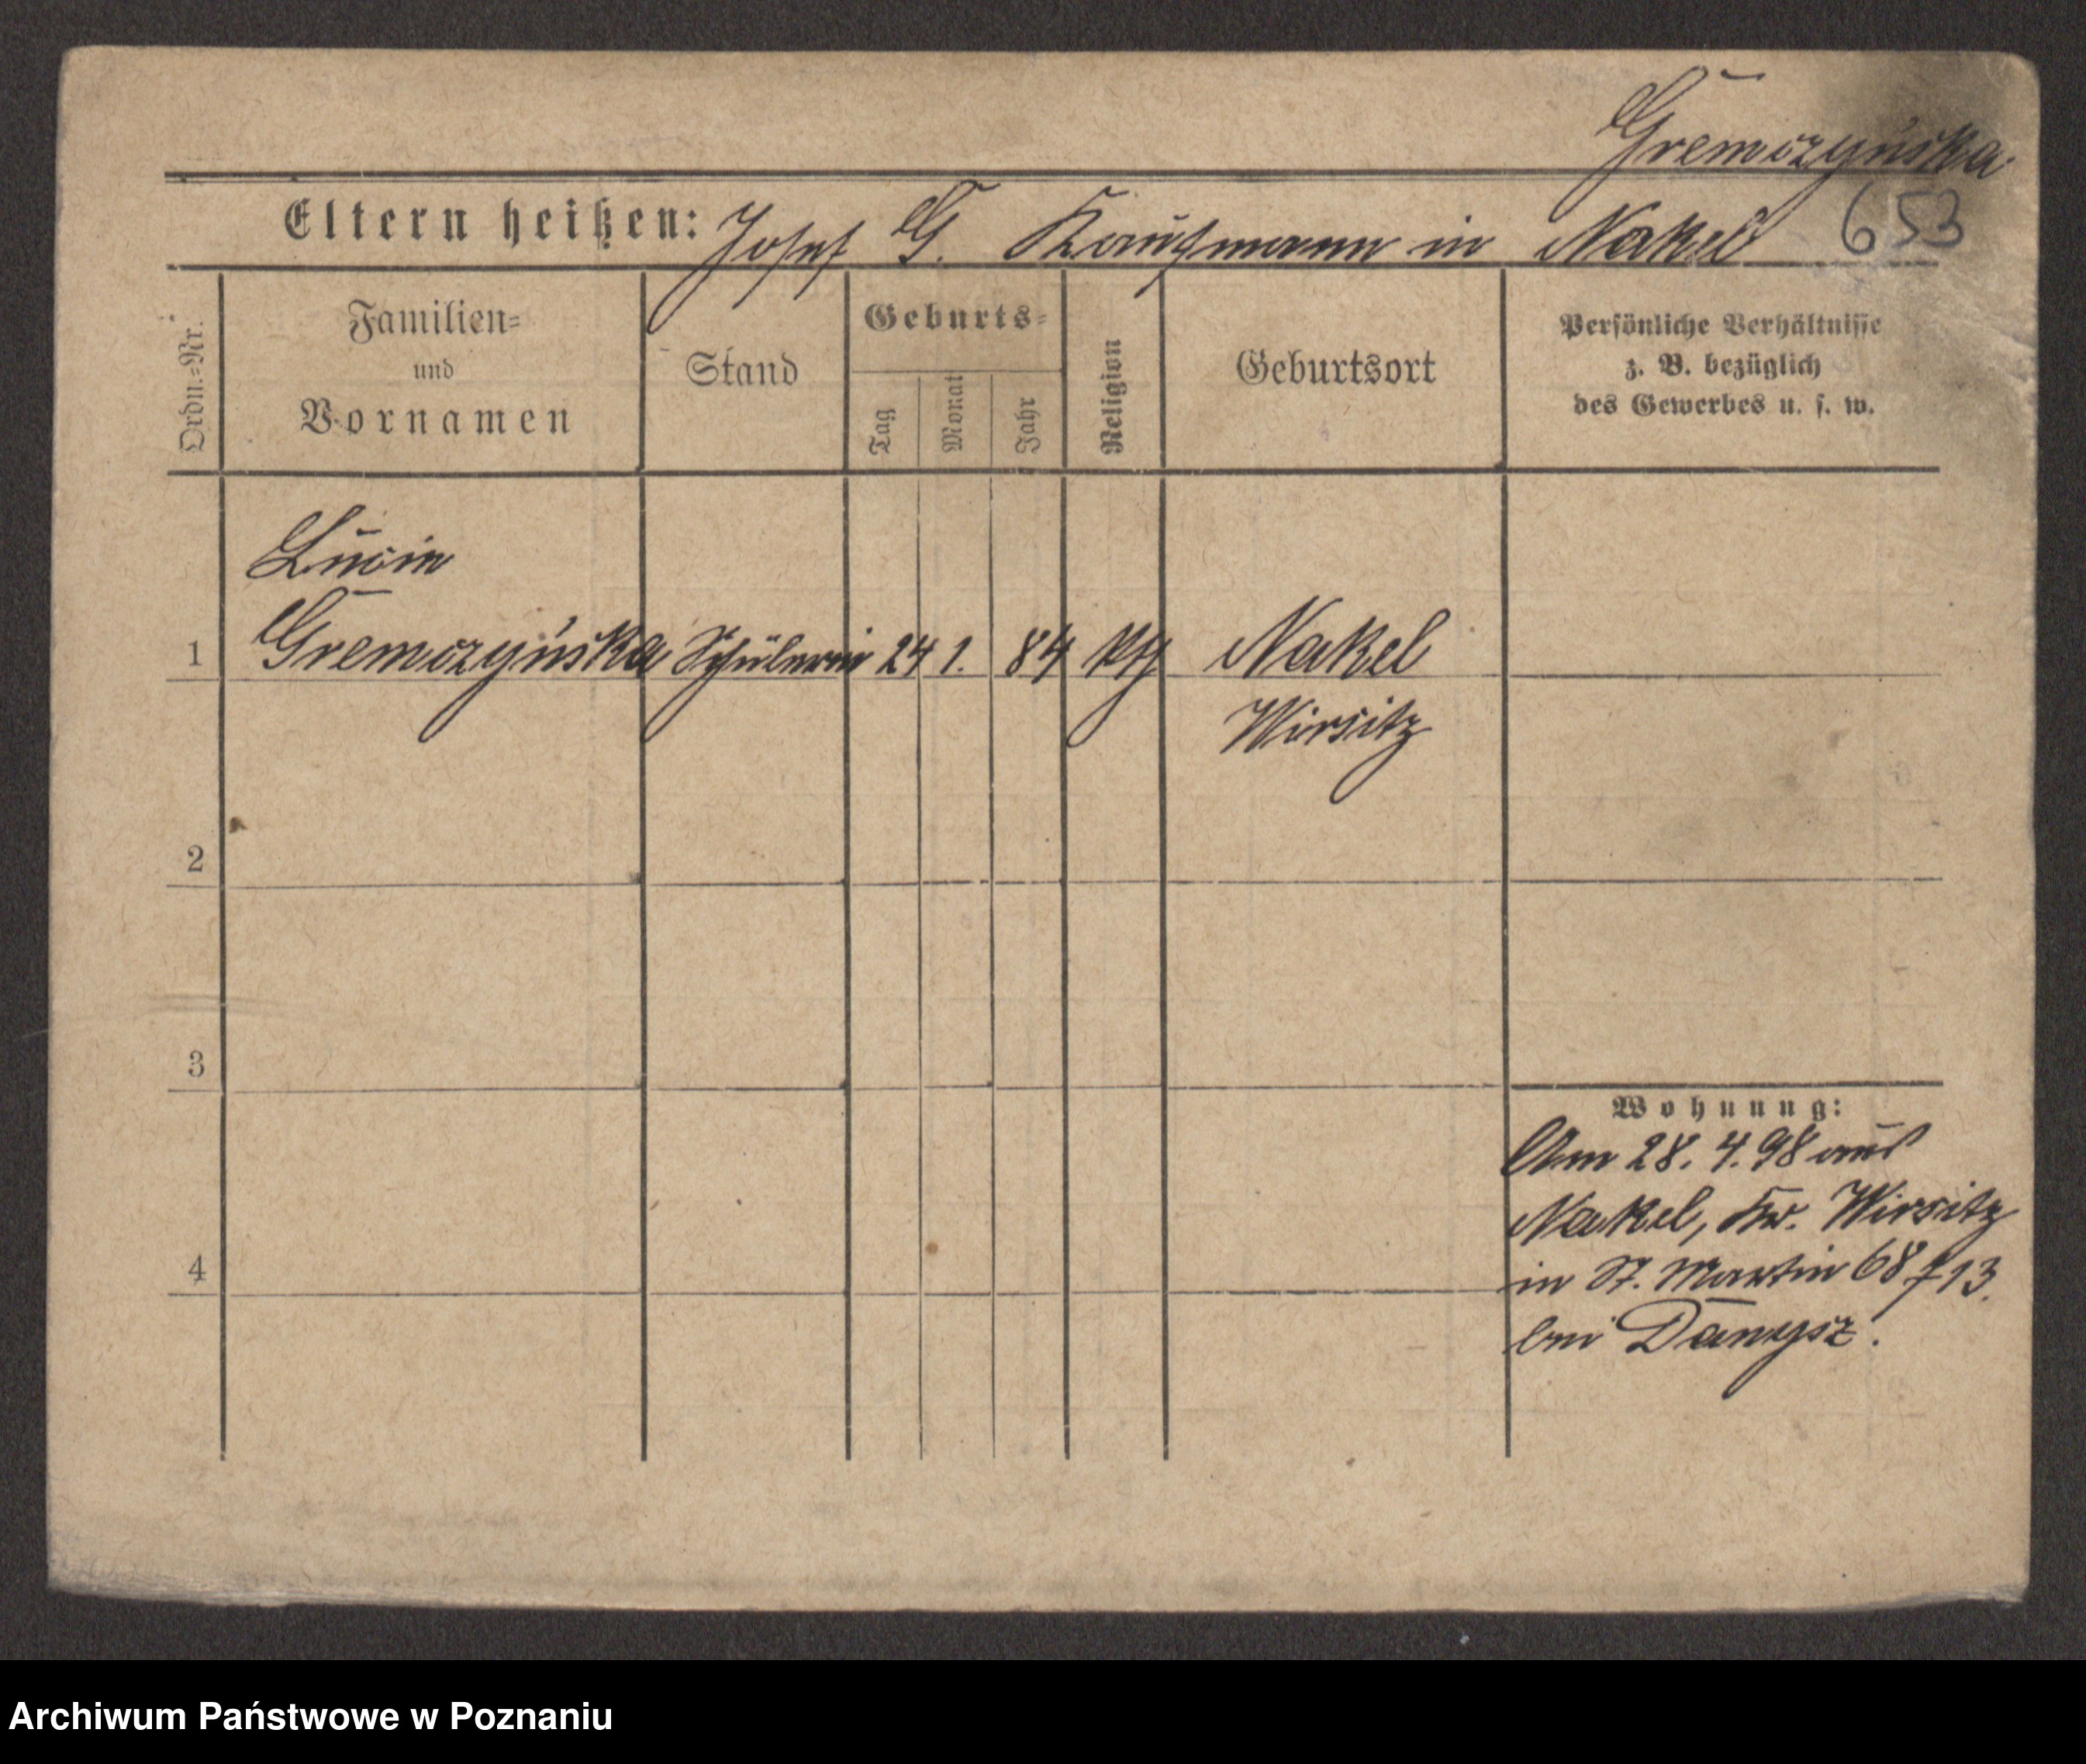 Gremczyńska
653
Eltern heißen: Josef G. Kaufmann in Nakel
Ordn.-Nr.
Familien-
und
Vornamen
Stand
Geburts-
Tag
Monat
Jahr
Religion
Geburtsort
Persönliche Verhältnisse
z. B. bezüglich
des Gewerbes u. s. w.
Lucie
1 Gremczyńska Schülerin 24 1. 84 kth Nakel
Wirsitz
2
3
4
Wohnung:
Am 28. 4. 98 aus
Nakel, Kr. Wirsitz
in St. Martin 68 f 13.
bei Danysz.
Archiwum Państwowe w Poznaniu